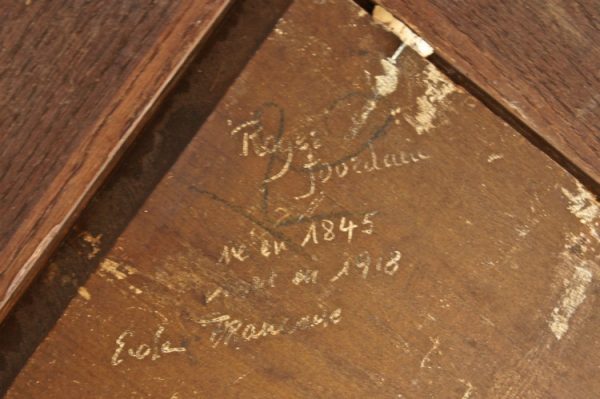 Roger
Jourdain
né en 1845
mort en 1918
Ecole Francaise